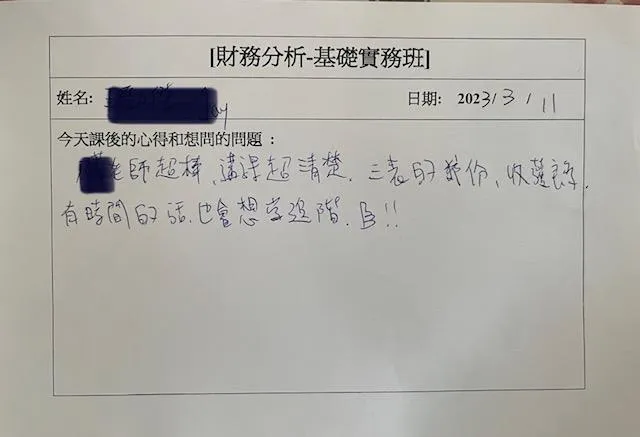 [財務分析-基礎實務班]
姓名: ay 日期: 2023/3/11
今天課後的心得和想問的問題：
老師超棒、講課超清楚. 三表的部份、收穫良多.
有時間的話. 也會想學進階. 👍!!